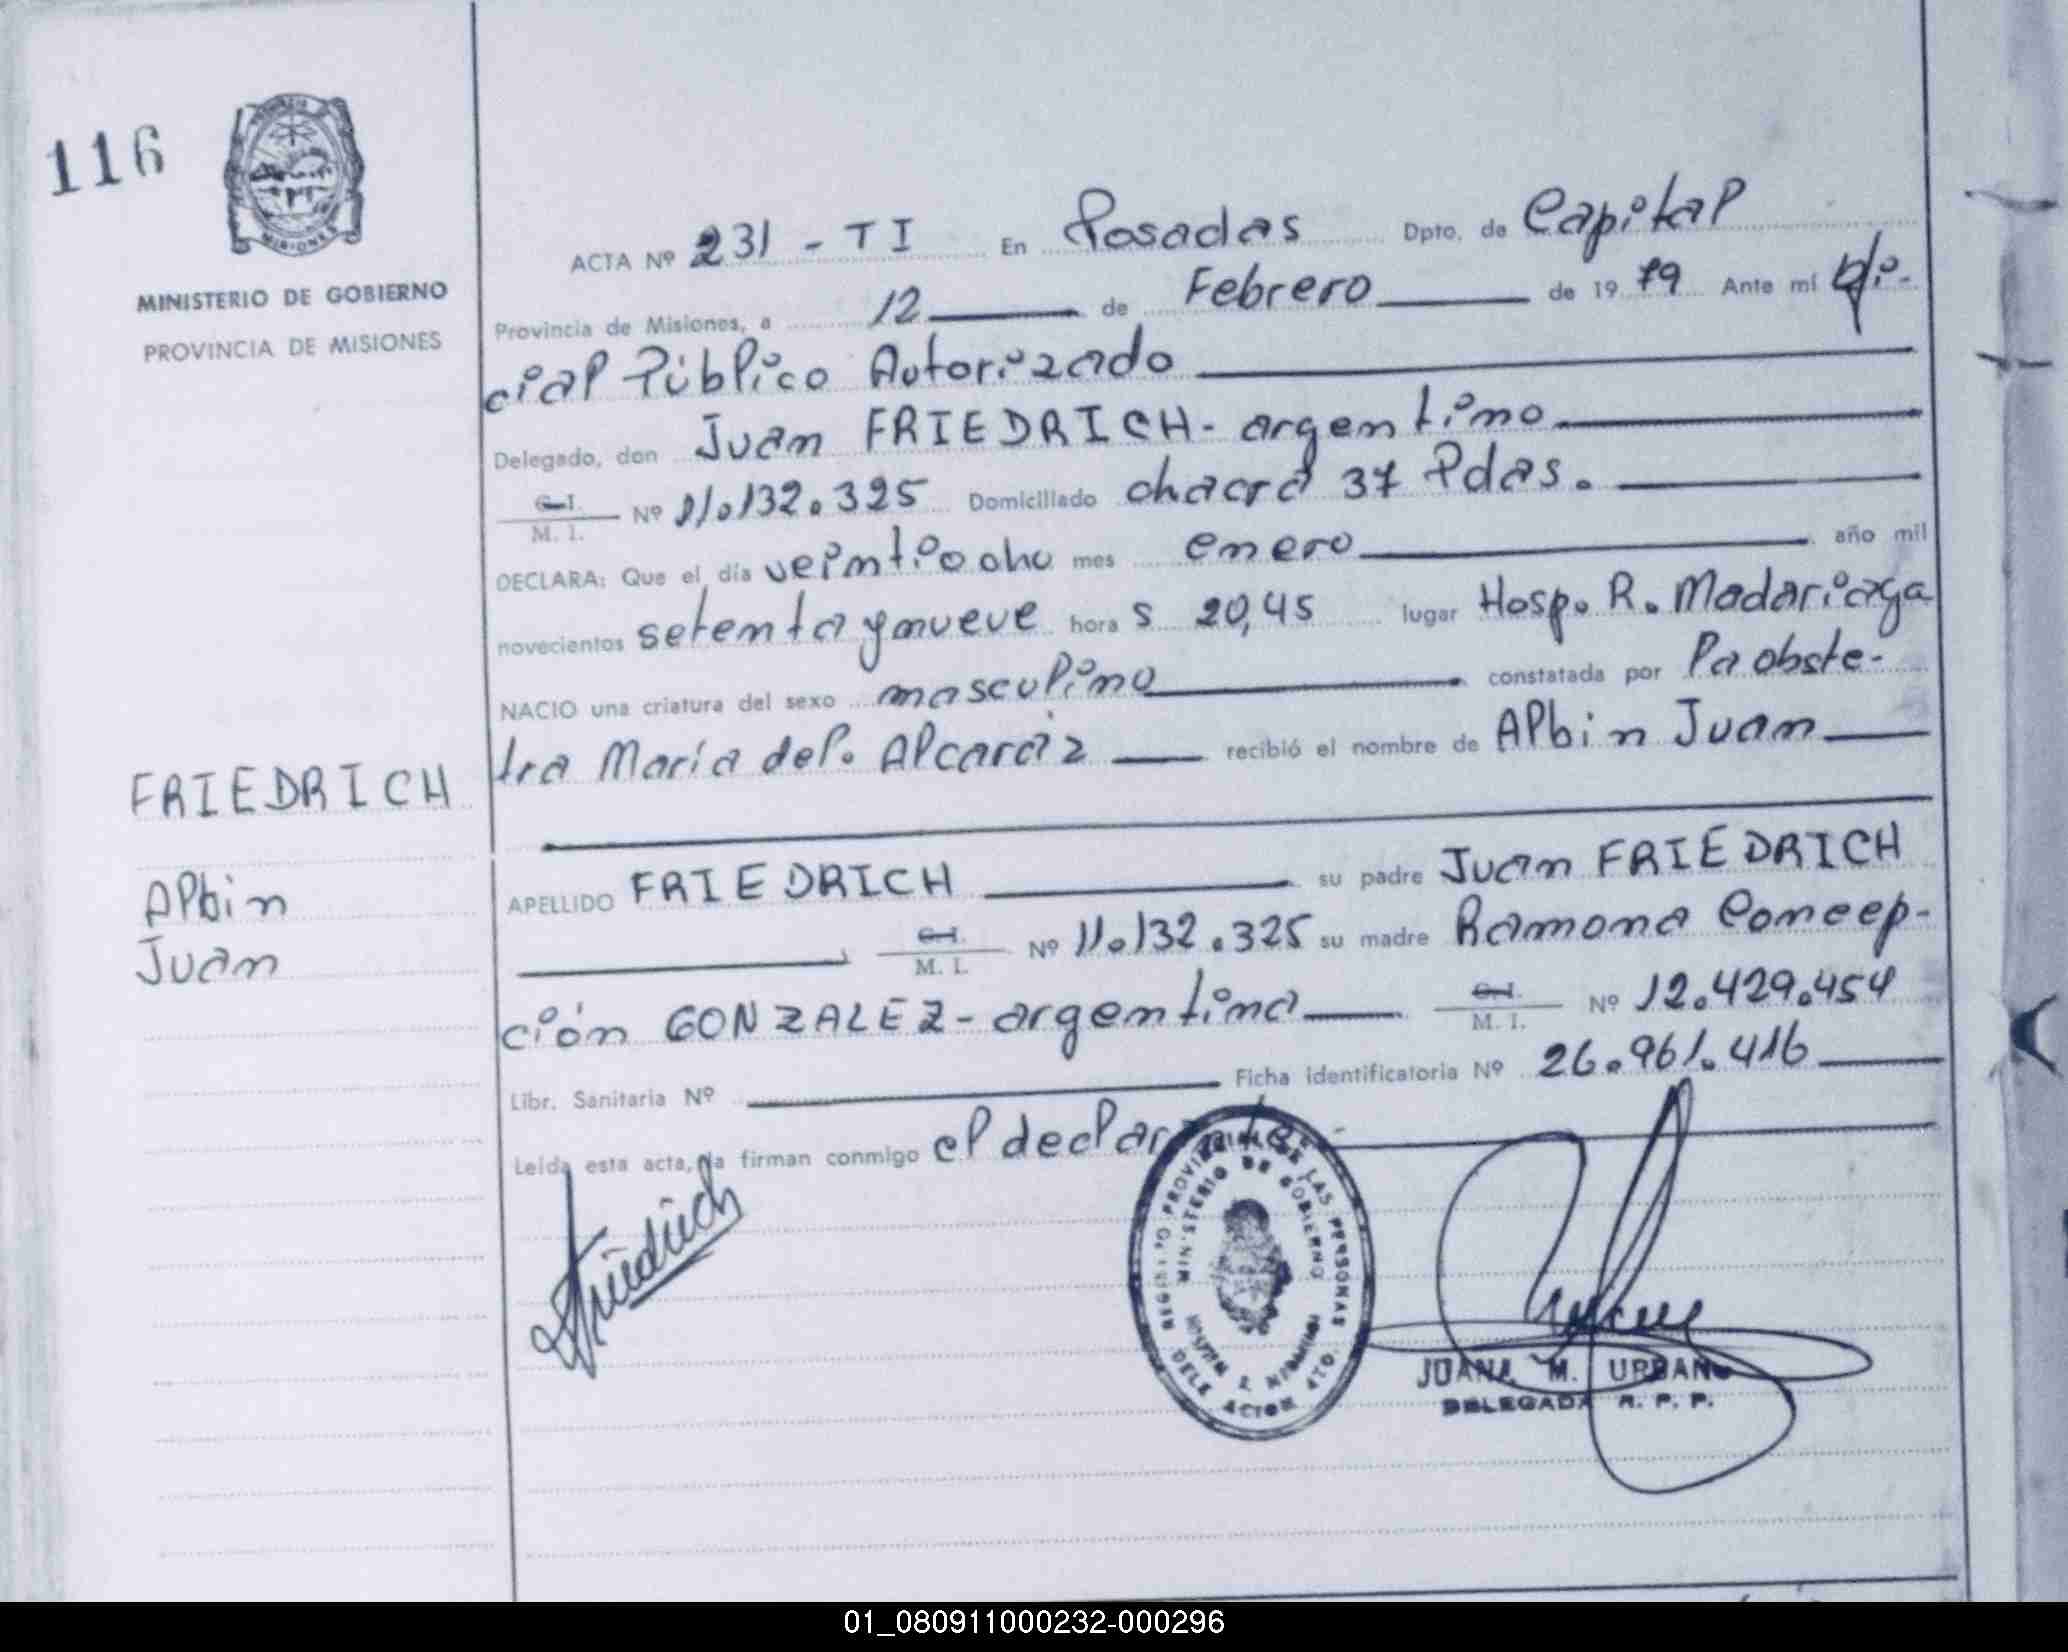 116
MISIONES
MINISTERIO DE GOBIERNO
PROVINCIA DE MISIONES
ACTA Nº 231 - TI En Posadas Dpto. de Capital
Provincia de Misiones, a 12 de Febrero de 1979 Ante mí Ofi-
cial Público Autorizado
Delegado, don Juan FRIEDRICH - argentino
C. I. M. I. Nº 11.132.325 Domiciliado chacra 37 Pdas.
DECLARA: Que el día veintiocho mes enero año mil
novecientos setenta y nueve hora s 20,45 lugar Hosp. R. Madariaga
NACIO una criatura del sexo masculino constatada por la obste-
tra María del. Alcaraz recibió el nombre de Albin Juan
FRIEDRICH
Albin
Juan
APELLIDO FRIEDRICH su padre Juan FRIEDRICH
C. I. M. I. Nº 11.132.325 su madre Ramona Concep-
ción GONZALEZ - argentina C. I. M. I. Nº 12.429.454
Libr. Sanitaria Nº Ficha identificatoria Nº 26.961.416
Leída esta acta, la firman conmigo el declarante
Friedrich
REGISTRO PROVINCIAL DE LAS PERSONAS
MINISTERIO DE GOBIERNO
JUANA M. URBANO
DELEGADA R. P. P.
01_080911000232-000296